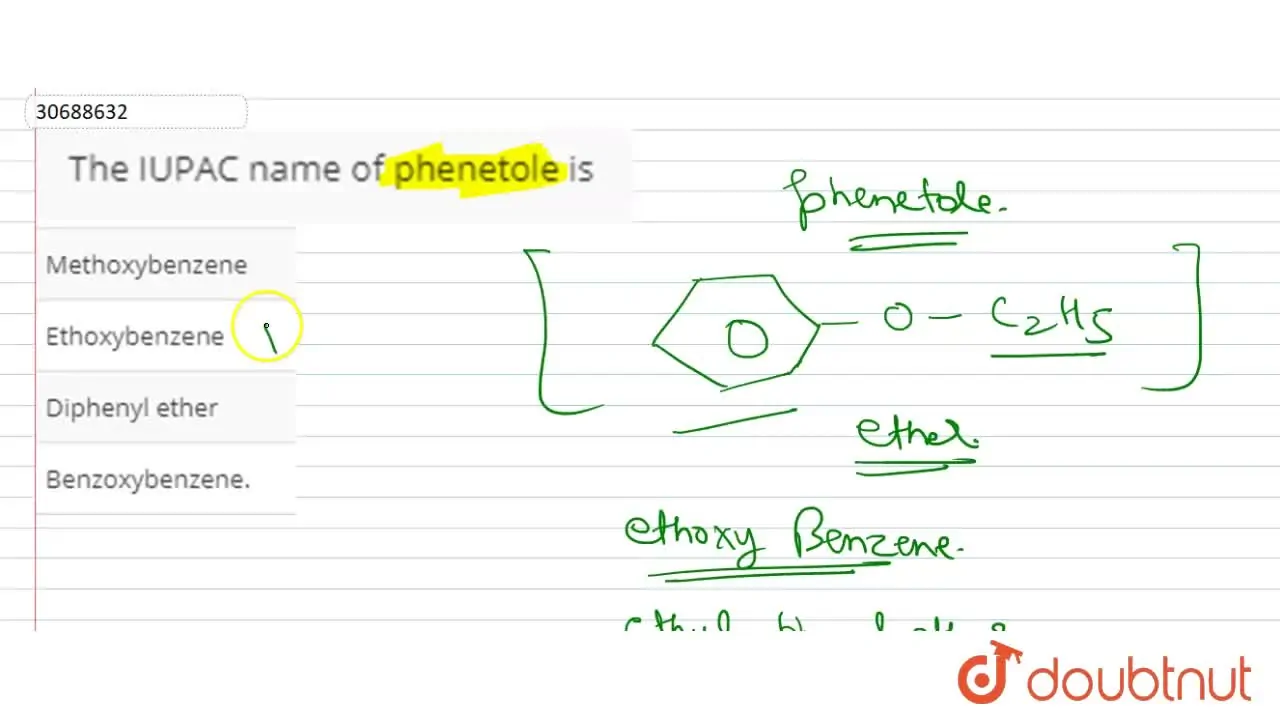 30688632
The IUPAC name of phenetole is
Methoxybenzene
Ethoxybenzene
Diphenyl ether
Benzoxybenzene.
phenetole.
O - C2H5
ether.
ethoxy Benzene.
doubtnut